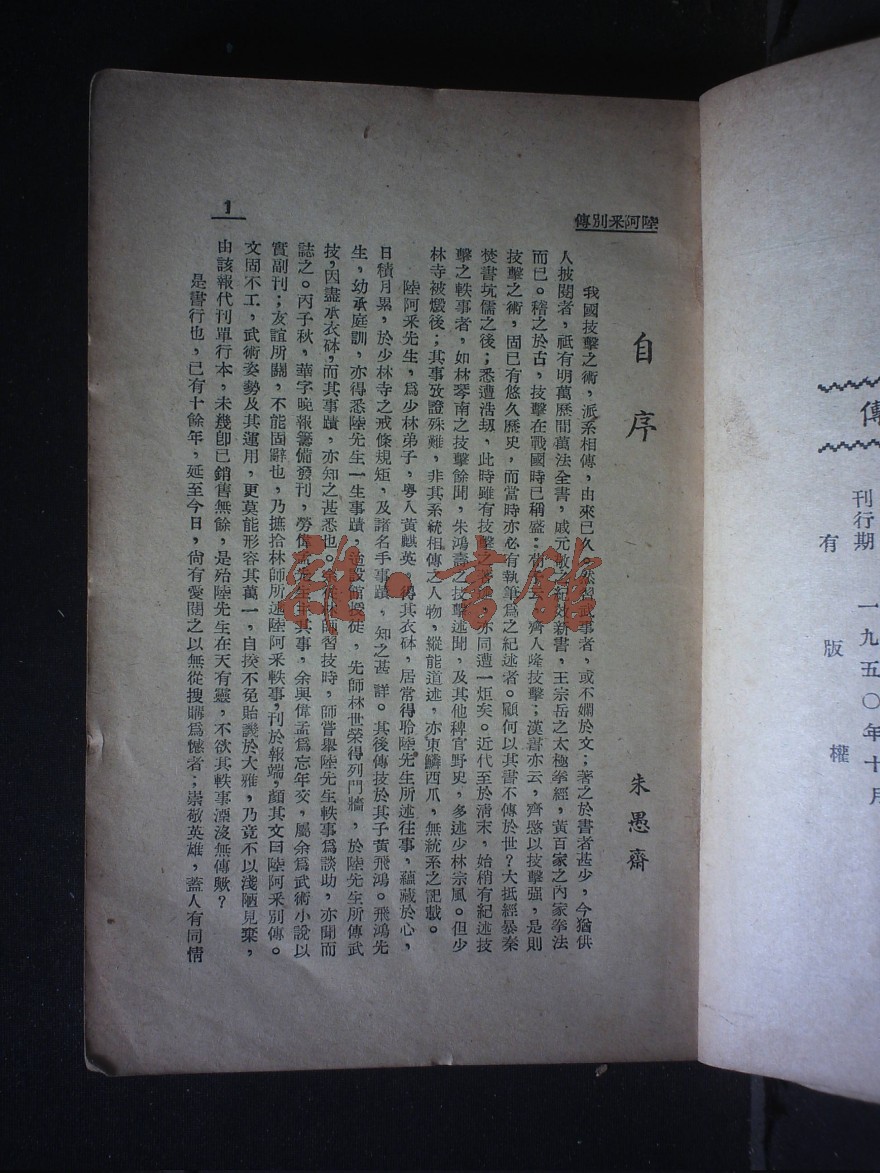 傳
刊行期 一九五〇年十月
有 版 權
陸阿采別傳
自序
朱愚齋
我國技擊之術，派系相傳，由來已久。然習武事者，或不嫻於文；著之於書者甚少，今猶供
人披閱者，祇有明萬歷間萬法全書，戚元敬之紀效新書，王宗岳之太極拳經，黃百家之內家拳法
而已。稽之於古，技擊在戰國時已稱盛：荀子云，齊人隆技擊；漢書亦云，齊愍以技擊強，是則
技擊之術，固已有悠久歷史，而當時亦必有執筆爲之紀述者。顧何以其書不傳於世？大抵經暴秦
焚書坑儒之後；悉遭浩刼，此時雖有技擊之書，亦同遭一炬矣。近代至於淸末，始稍有紀述技
擊之軼事者，如林琴南之技擊餘聞，朱鴻壽之技擊述聞，及其他稗官野史，多述少林宗風。但少
林寺被燬後；其事攷證殊難，非其系統相傳之人物，縱能道述，亦東鱗西爪，無統系之記載。
陸阿采先生，爲少林弟子，粵人黃麒英，得其衣砵，居常得聆陸先生所述往事，蘊藏於心，
日積月累，於少林寺之戒條規矩，及諸名手事蹟，知之甚詳。其後傳技於其子黃飛鴻。飛鴻先
生，幼承庭訓，亦得悉陸先生一生事蹟，迨設館授徒，先師林世榮得列門牆，於陸先生所傳武
技，因盡承衣砵，而其事蹟，亦知之甚悉也。余從林師習技時，師嘗舉陸先生軼事爲談助，亦聞而
誌之。丙子秋，華字晚報籌備發刊，勞偉孟先生主其事，余與偉孟爲忘年交，屬余爲武術小說以
實副刊；友誼所關，不能固辭也，乃摭拾林師所述陸阿采軼事，刊於報端，顏其文曰陸阿采別傳。
文固不工，武術姿勢及其運用，更莫能形容其萬一，自揆不免貽譏於大雅，乃竟不以淺陋見棄，
由該報代刊單行本，未幾卽已銷售無餘，是殆陸先生在天有靈，不欲其軼事湮沒無傳歟？
是書行也，已有十餘年，延至今日，尙有愛閱之以無從搜購爲憾者；崇敬英雄，蓋人有同情
1
雜·書館